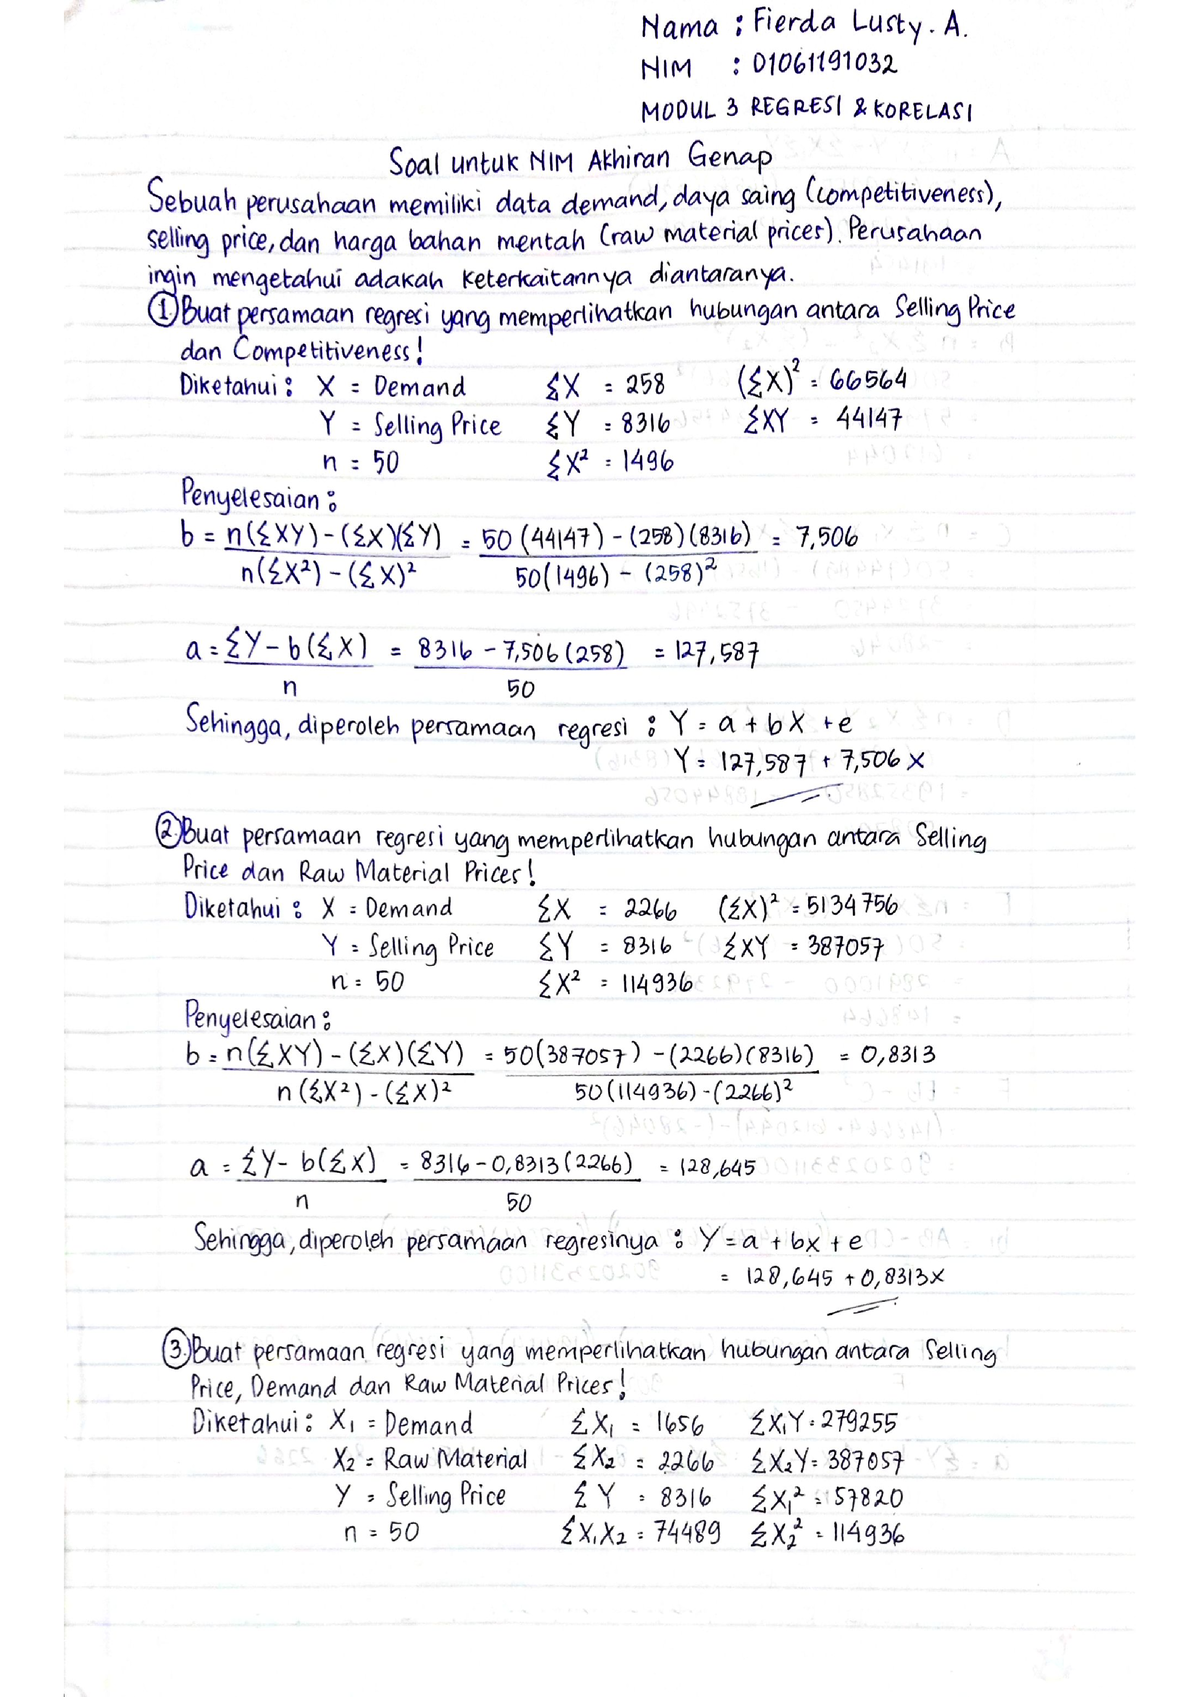 Nama : Fierda Lusty. A.
NIM : 01061191032
MODUL 3 REGRESI & KORELASI
Soal untuk NIM Akhiran Genap
Sebuah perusahaan memiliki data demand, daya saing (competitiveness),
selling price, dan harga bahan mentah (raw material prices). Perusahaan
ingin mengetahui adakah keterkaitannya diantaranya.
1. Buat persamaan regresi yang memperlihatkan hubungan antara Selling Price
dan Competitiveness!
Diketahui : X = Demand ΣX = 258 (ΣX)² = 66564
Y = Selling Price ΣY = 8316 ΣXY = 44147
n = 50 ΣX² = 1496
Penyelesaian :
b = n(ΣXY) - (ΣX)(ΣY) = 50 (44147) - (258)(8316) = 7,506
n(ΣX²) - (ΣX)² 50(1496) - (258)²
a = ΣY - b(ΣX) = 8316 - 7,506 (258) = 127,587
n 50
Sehingga, diperoleh persamaan regresi : Y = a + bX + e
Y = 127,587 + 7,506 X
2. Buat persamaan regresi yang memperlihatkan hubungan antara Selling
Price dan Raw Material Prices!
Diketahui : X = Demand ΣX = 2266 (ΣX)² = 5134756
Y = Selling Price ΣY = 8316 ΣXY = 387057
n = 50 ΣX² = 114936
Penyelesaian :
b = n(ΣXY) - (ΣX)(ΣY) = 50(387057) - (2266)(8316) = 0,8313
n(ΣX²) - (ΣX)² 50(114936) - (2266)²
a = ΣY - b(ΣX) = 8316 - 0,8313(2266) = 128,645
n 50
Sehingga, diperoleh persamaan regresinya : Y = a + bx + e
= 128,645 + 0,8313x
3. Buat persamaan regresi yang memperlihatkan hubungan antara Selling
Price, Demand dan Raw Material Prices!
Diketahui : X₁ = Demand ΣX₁ = 1656 ΣX₁Y = 279255
X₂ = Raw Material ΣX₂ = 2266 ΣX₂Y = 387057
Y = Selling Price ΣY = 8316 ΣX₁² = 57820
n = 50 ΣX₁X₂ = 74489 ΣX₂² = 114936